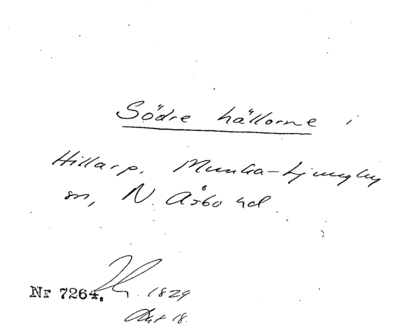 Södre hällorne i
Hillarp, Munka-Ljungby
sn, N. Åsbo hd.
Nr 7264. 1829
Akt 18.